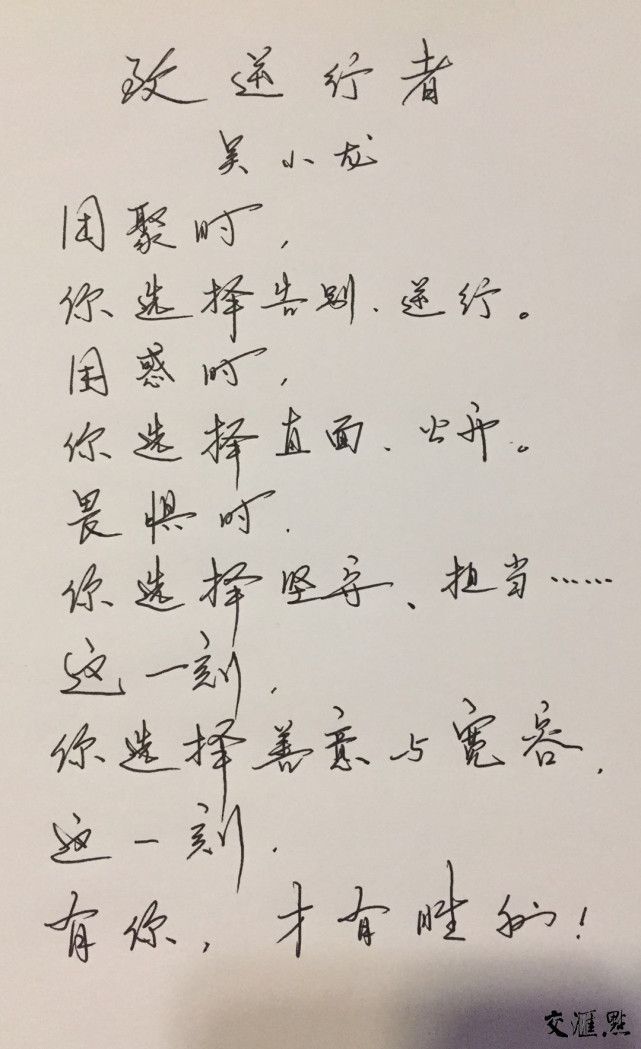 致逆行者
吴小龙
团聚时，
你选择告别、逆行。
困惑时，
你选择直面、公开。
畏惧时，
你选择坚守、担当……
这一刻，
你选择善意与宽容，
这一刻，
有你，才有胜利！
交汇點